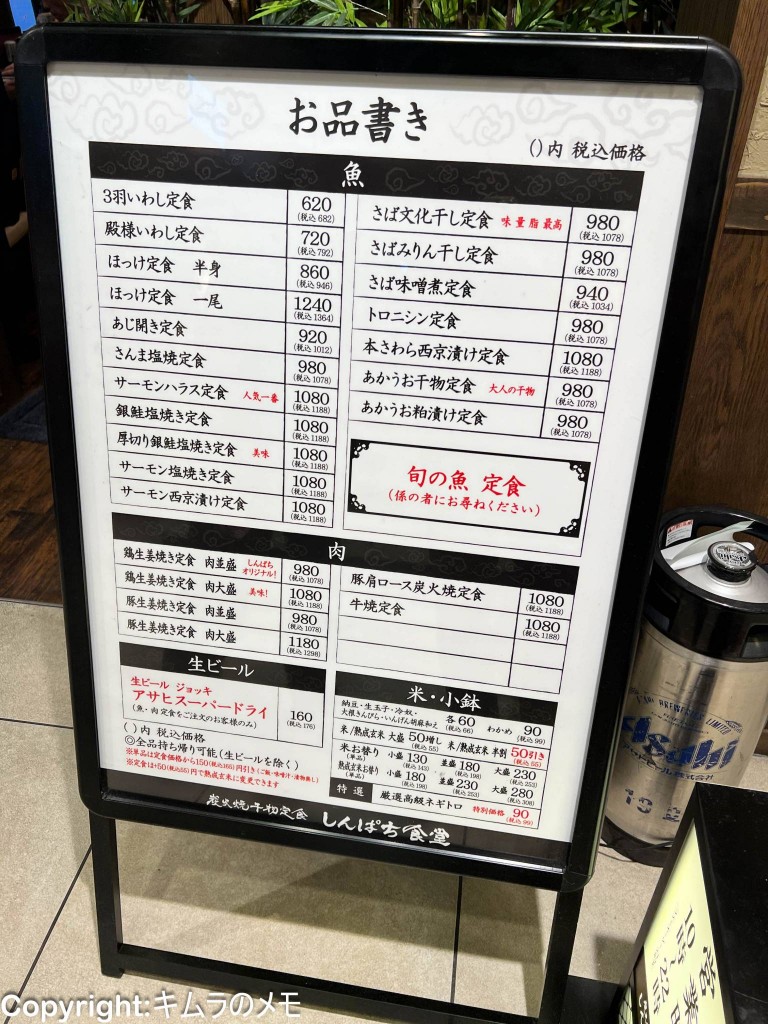 お品書き
()内 税込価格
魚
3羽いわし定食 620 (税込 682)
殿様いわし定食 720 (税込 792)
ほっけ定食 半身 860 (税込 946)
ほっけ定食 一尾 1240 (税込 1364)
あじ開き定食 920 (税込 1012)
さんま塩焼定食 980 (税込 1078)
サーモンハラス定食 人気一番 1080 (税込 1188)
銀鮭塩焼き定食 1080 (税込 1188)
厚切り銀鮭塩焼き定食 美味 1080 (税込 1188)
サーモン塩焼き定食 1080 (税込 1188)
サーモン西京漬け定食 1080 (税込 1188)
さば文化干し定食 味 量 脂 最高 980 (税込 1078)
さばみりん干し定食 980 (税込 1078)
さば味噌煮定食 940 (税込 1034)
トロニシン定食 980 (税込 1078)
本さわら西京漬け定食 1080 (税込 1188)
あかうお干物定食 大人の干物 980 (税込 1078)
あかうお粕漬け定食 980 (税込 1078)
旬の魚 定食
(係の者にお尋ねください)
肉
鶏生姜焼き定食 肉並盛 しんぱちオリジナル! 980 (税込 1078)
鶏生姜焼き定食 肉大盛 美味! 1080 (税込 1188)
豚生姜焼き定食 肉並盛 980 (税込 1078)
豚生姜焼き定食 肉大盛 1180 (税込 1298)
豚肩ロース炭火焼定食 1080 (税込 1188)
牛焼定食 1080 (税込 1188)
生ビール
生ビール ジョッキ
アサヒスーパードライ 160 (税込 176)
(魚・肉 定食をご注文のお客様のみ)
()内 税込価格
◎全品持ち帰り可能(生ビールを除く)
※単品は定食価格から150(税込165)円引き(ご飯・味噌汁・漬物無し)
※定食は+50(税込55)円で熟成玄米に変更できます
米・小鉢
納豆・生玉子・冷奴・
大根きんぴら・いんげん胡麻和え 各60 (税込 66) わかめ 90 (税込 99)
米/熟成玄米 大盛 50増し (税込 55) 米/熟成玄米 半割 50引き (税込 55)
米お替り (単品) 小盛 130 (税込 143) 並盛 180 (税込 198) 大盛 230 (税込 253)
熟成玄米お替り (単品) 小盛 180 (税込 198) 並盛 230 (税込 253) 大盛 280 (税込 308)
特選 厳選高級ネギトロ 特別価格 90 (税込 99)
炭火焼干物定食 しんぱち食堂
Asahi
アサヒビール株式会社
営業
Copyright:キムラのメモ